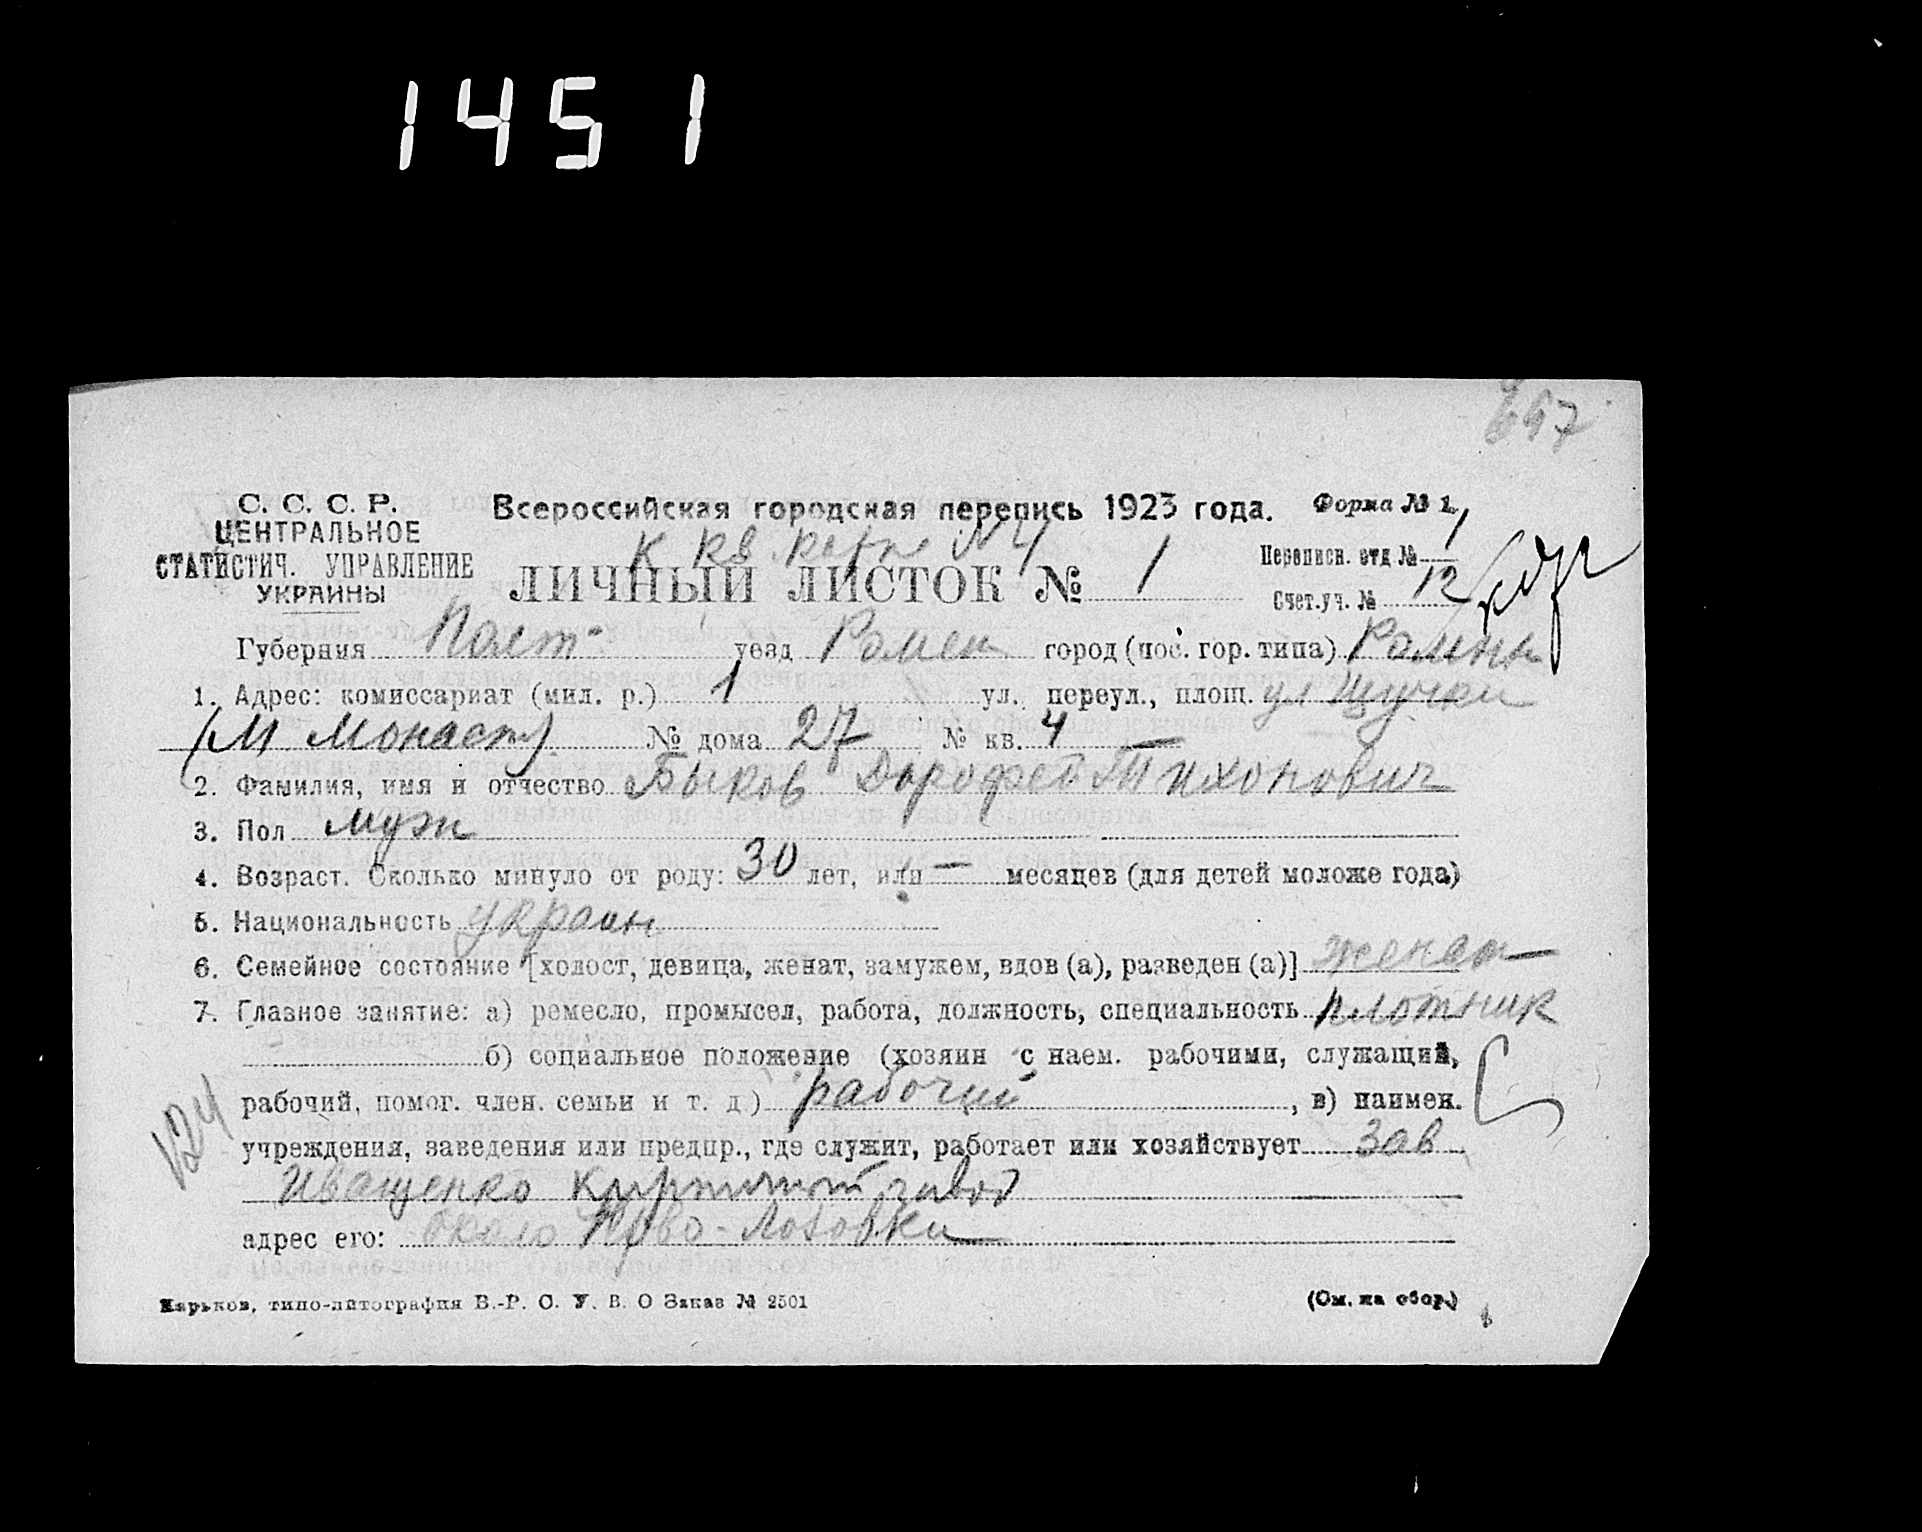 1451
657
С. С. С. Р.
ЦЕНТРАЛЬНОЕ
СТАТИСТИЧ. УПРАВЛЕНИЕ
УКРАИНЫ
Всероссийская городская перепись 1923 года.
Форма № 1.
К кв. карте №4
ЛИЧНЫЙ ЛИСТОК № 1
Переписн. отд № 1
Счет.уч. № 12
Губерния Полт- уезд Ромен город (пос. гор. типа) Ромны
1. Адрес: комиссариат (мил. р.) 1 ул. переул., площ. ул Щучки
(М Монаст) № дома 27 № кв. 4
2. Фамилия, имя и отчество Быков Дорофей Тихонович
3. Пол муж
4. Возраст. Сколько минуло от роду: 30 лет, или — месяцев (для детей моложе года)
5. Национальность украин
6. Семейное состояние [холост, девица, женат, замужем, вдов (а), разведен (а)] женат
7. Главное занятие: а) ремесло, промысел, работа, должность, специальность плотник
б) социальное положение (хозяин с наем. рабочими, служащий,
рабочий, помог. член. семьи и т. д) рабочий, в) наимен.
124
учреждения, заведения или предпр., где служит, работает или хозяйствует Зав
Иващенко завод
адрес его: около Лозовки
Харьков, типо-литография В.-Р. С. У. В. О Заказ № 2501
(См. на обор.)